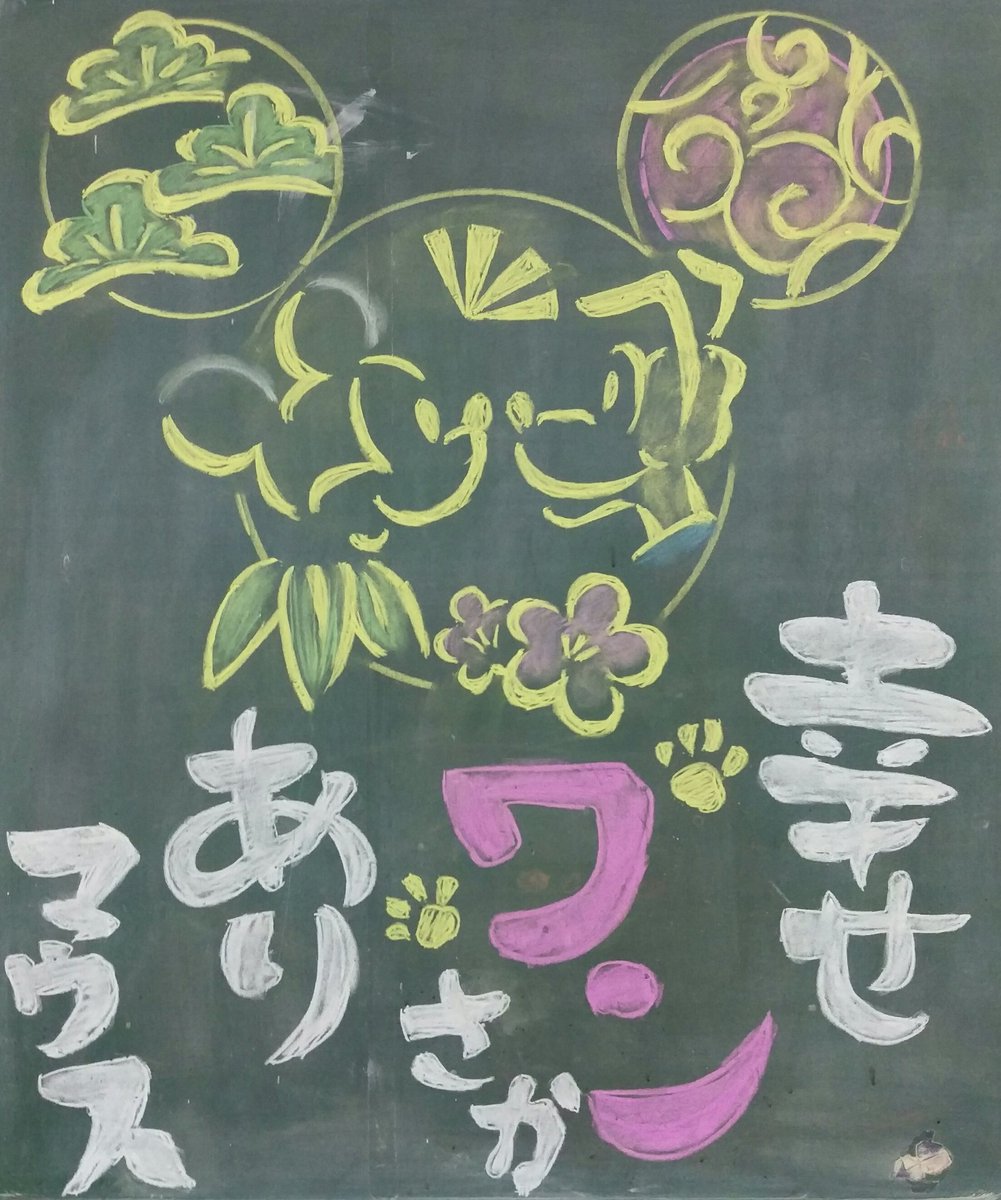 幸せ
ワン
さか
あり
マウス